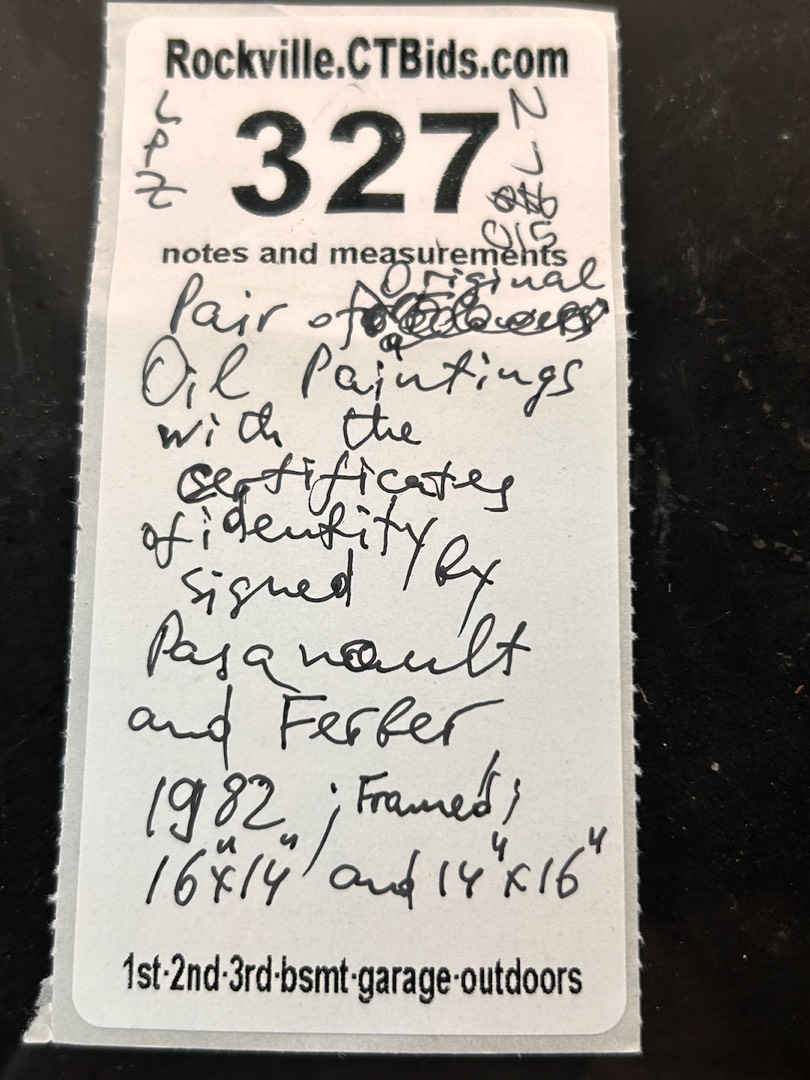 Rockville.CTBids.com
L P Z
327
N L
015
notes and measurements
Original
Pair of
Oil Paintings
with the
certificates
of identity
signed by
Pasanault
and Ferber
1982; Framed;
16"x14" and 14"x16"
1st·2nd·3rd·bsmt·garage·outdoors